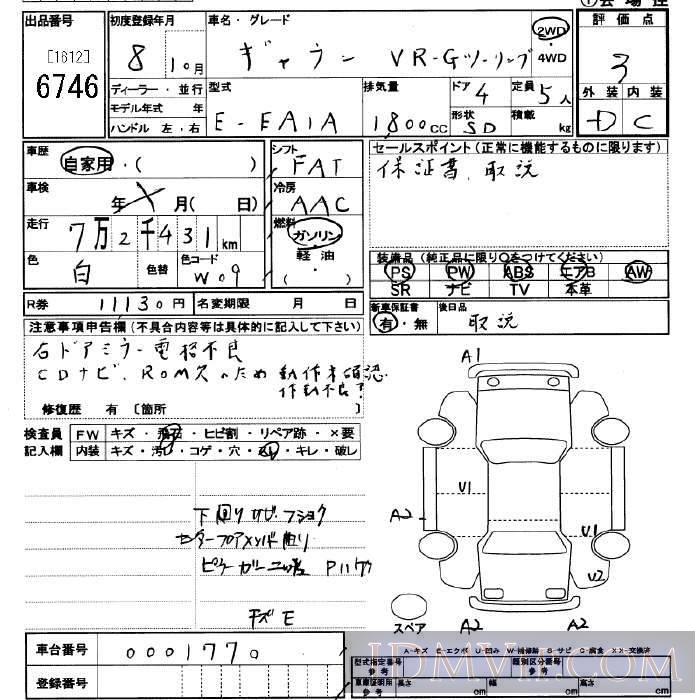 出品番号
[1612]
6746
初度登録年月
8 10月
ディーラー・並行
モデル年式 年
ハンドル 左・右
車名・グレード
ギャラン VR-Gツーリング
2WD
4WD
型式
E-EA1A
排気量
1800CC
ドア
4
形状
SD
定員
5人
積載
kg
評価点
3
外装 内装
D C
車歴
自家用・( )
車検
年 月( 日)
走行
7万2千431km
色
白
色替
色コード
W09
シフト
FAT
冷房
AAC
燃料
ガソリン
軽油
( )
セールスポイント(正常に機能するものに限ります)
保証書、取説
装備品(純正品に限り○をつけてください)
PS PW ABS エアB AW
SR ナビ TV 本革
新車保証書
有・無
後日品
取説
R券 11130円
名変期限 月 日
注意事項申告欄(不具合内容等は具体的に記入して下さい)
右ドアミラー電格不良
CDナビ、ROM欠のため動作未確認
作動不良?
修復歴 有 〔箇所 〕
検査員
記入欄
FW キズ・飛石・ヒビ割・リペア跡・×要
内装 キズ・汚れ・コゲ・穴・・キレ・破し
下回りサビ・フショク
P
キズE
A1
U1
A2
U1
U2
スペア
A2
A2
A-キズ E-エクボ U-凹み W-補修跡 S-サビ C-腐食 XX-交換済
車台番号
0001770
登録番号
型式指定番号
参考
類別区分番号
参考
車庫証明用
参考
長さ cm
幅 cm
高さ cm
JDMVIP.com